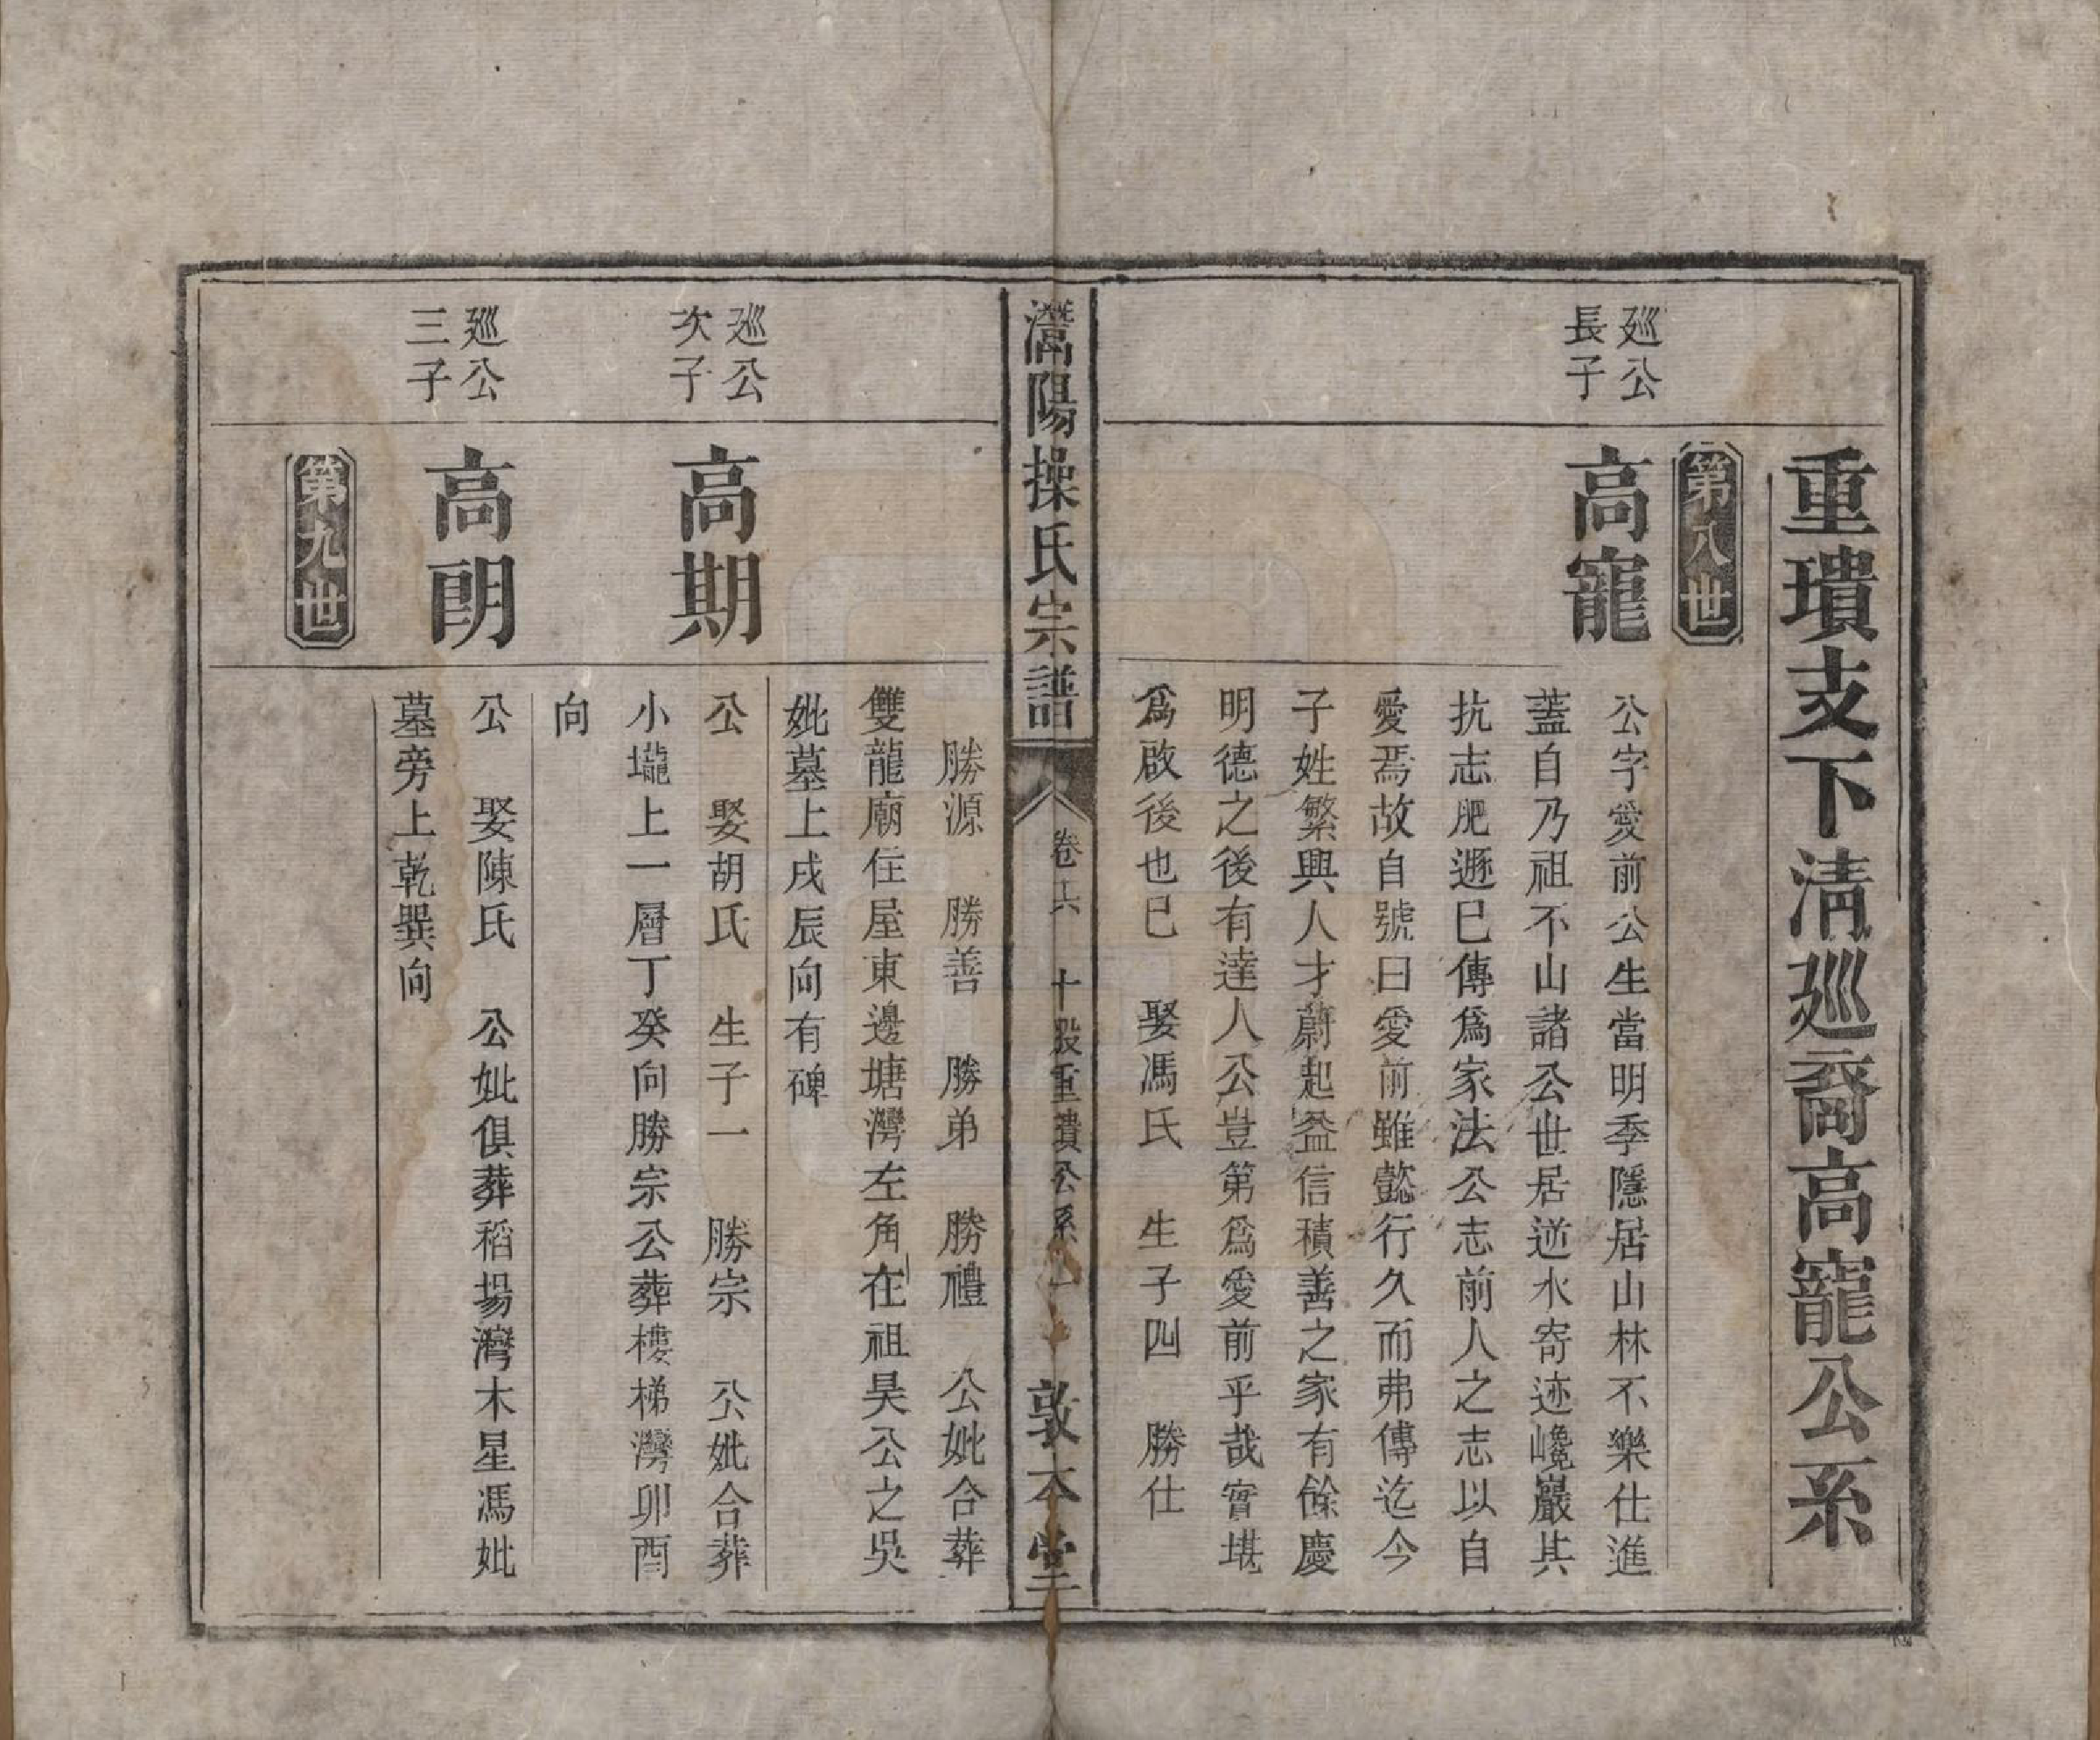 重璝支下清廵裔高寵公系
第八世
廵公
長子
高寵
公字愛前公生當明季隱居山林不樂仕進
蓋自乃祖不山諸公世居逆水寄迹巉巖其
抗志肥遯已傳爲家法公志前人之志以自
愛焉故自號曰愛前雖懿行久而弗傳迄今
子姓繁興人才蔚起益信積善之家有餘慶
明德之後有達人公豈第爲愛前乎哉實堪
爲啟後也已　娶馮氏　生子四　勝仕
灊陽操氏宗譜
卷六　十股重璝公系　一
敦本堂
勝源　勝善　勝弟　勝禮　公妣合葬
雙龍廟住屋東邊塘灣左角在祖昊公之吳
妣墓上戌辰向有碑
廵公
次子
高期
公　娶胡氏　生子一　勝宗　公妣合葬
小壠上一層丁癸向勝宗公葬樓梯灣卯酉
向
廵公
三子
高朗
公　娶陳氏　公妣俱葬稻場灣木星馮妣
墓旁上乾巽向
第九世